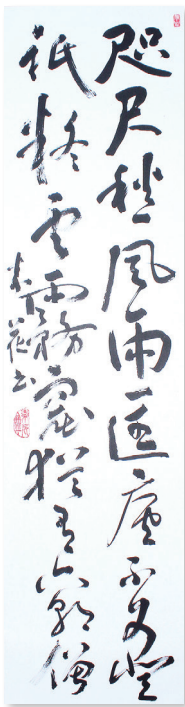 咫尺愁風雨匡廬不可登
祇疑云霧窟猶有六朝僧